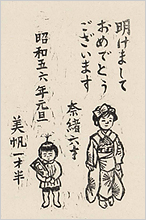 明けまして
おめでとう
ございます
昭和五六年元旦
奈緒六才
美帆一才半